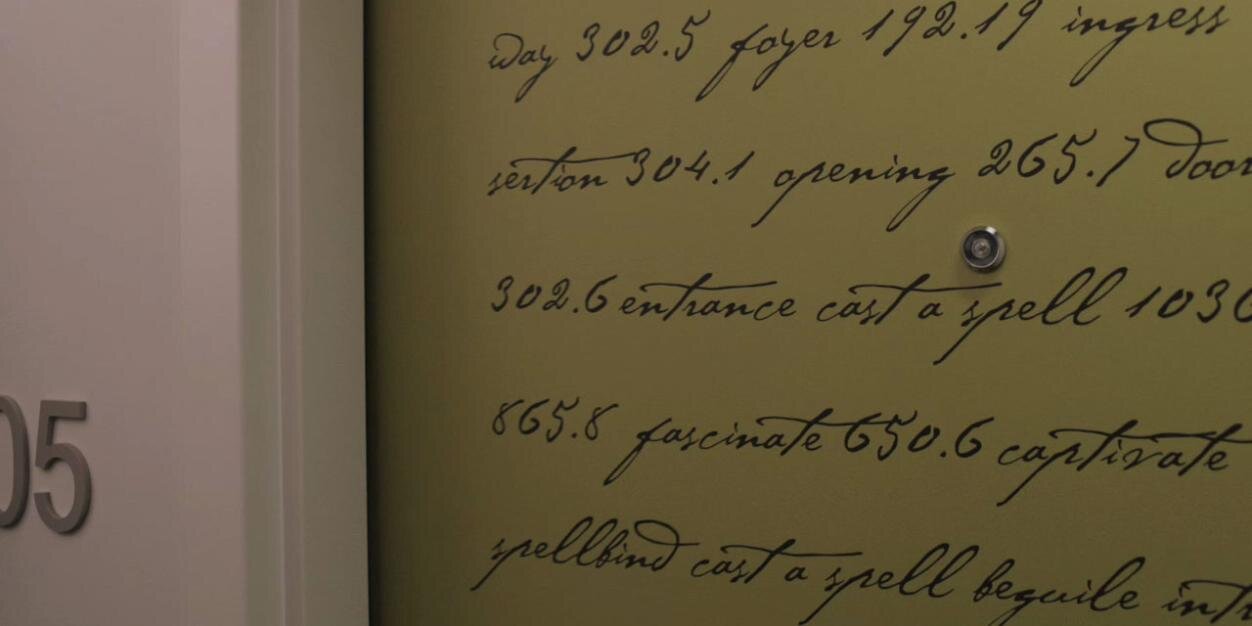 05
way 302.5 foyer 192.19 ingress
sertion 304.1 opening 265.7 door
302.6 entrance cast a spell 1036
865.8 fascinate 650.6 captivate
spellbind cast a spell beguile intr